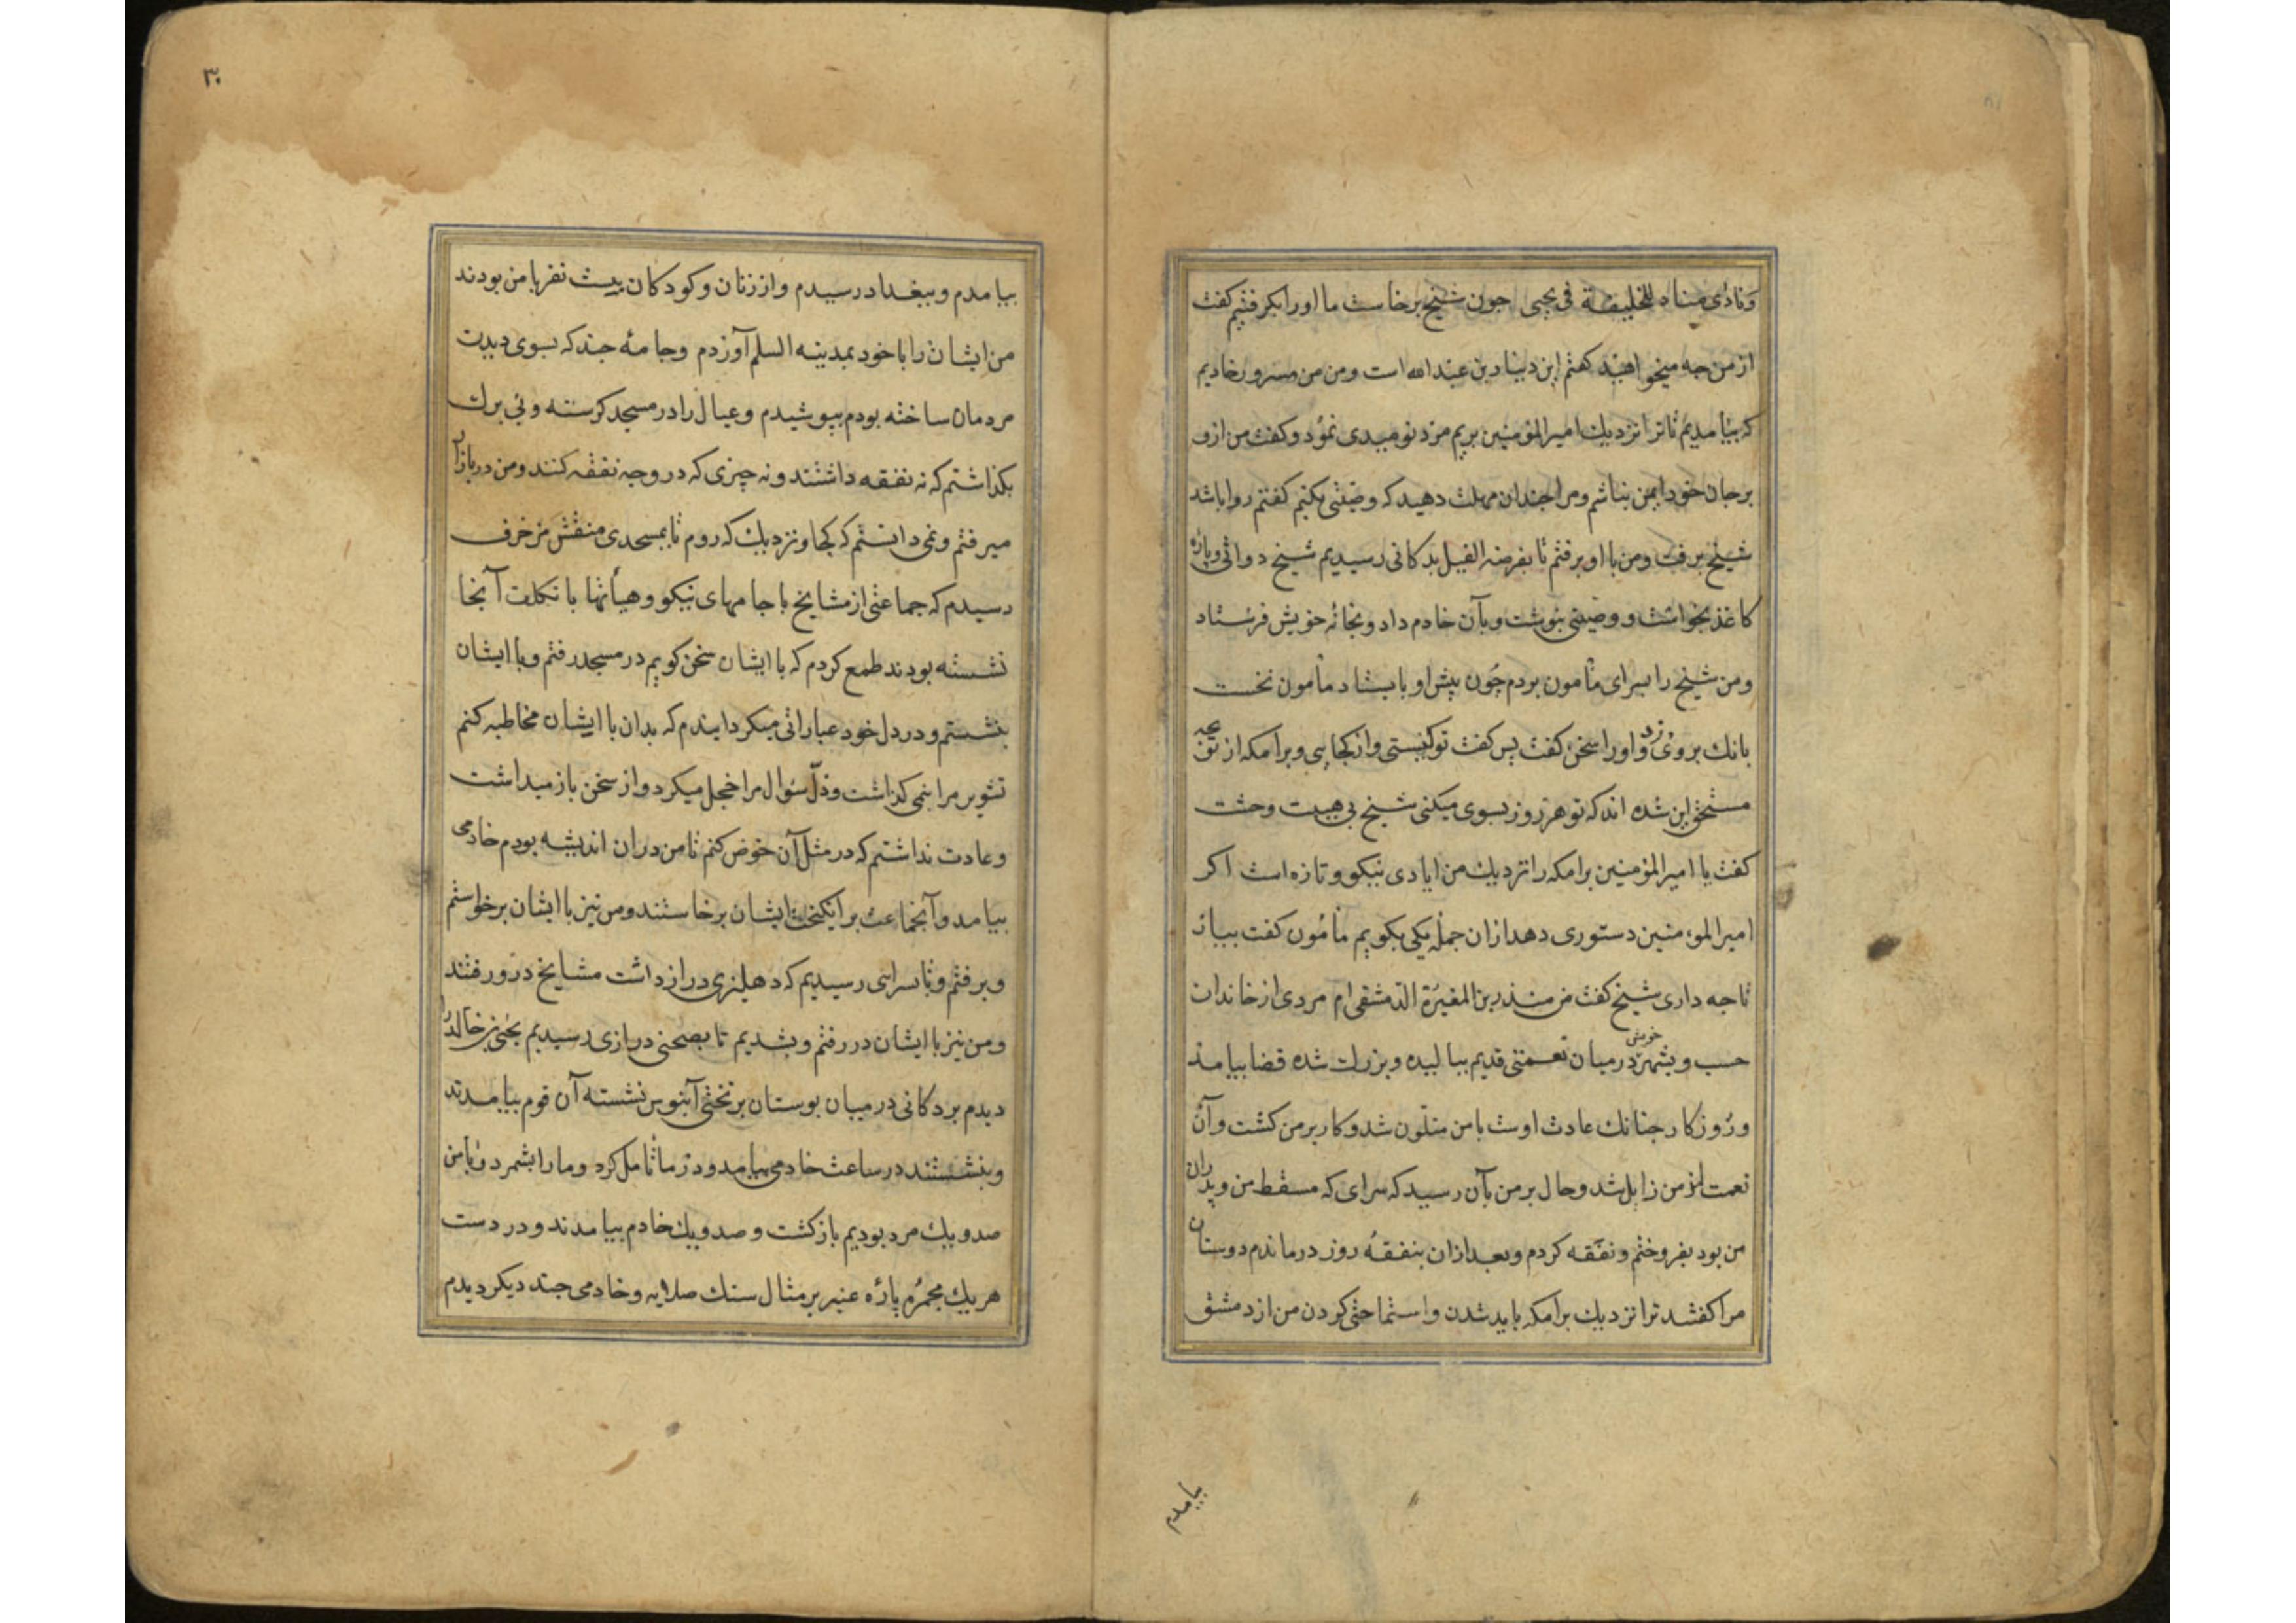 ونادی مناد للخلیفة فی یحیی جون شیخ برخاست ما اورا بکرفتیم کفت
از من جه میخواهید کفتم این دینار بن عبدالله است ومن من مسرور خادیم
که بیامدیم تا ترا نزدیك امیرالمؤمنین بریم مرد نومیدی نمود وکفت من ازو
برجان خود ایمن نباشم ومرا جندان مهلت دهید که وصیّتی بکنم کفتم روا باشد
شیخ برفت ومن با او برفتم تا بفرضة الفیل بدکانی رسیدیم شیخ دواتی وپارهٔ
کاغذ بخواست و وصیتی بنوشت وبآن خادم داد وبخانهٔ خویش فرستاد
ومن شیخ را بسرای مأمون بردم چون پیش او بایستاد مأمون نخست
بانك بروی زد واورا سخن کفت پس کفت تو کیستی واز کجایی وبرامکه از تو بجه
مستحق این شده اند که تو هر روز بسوی میکنی شیخ بی هیبت وحشت
کفت یا امیرالمؤمنین برامکه را نزدیك من ایادی نیکو وتازه است اکر
امیرالمؤمنین دستوری دهد ازان جمله یکی بکویم مأمون کفت بیار
تا جه داری شیخ کفت من منذر بن المغیرة الدّمشقی ام مردی از خاندان
حسب وبشهر خویش درمیان نعمتی قدیم ببالیده وبزرك شده قضا بیامد
وروزکار جنانك عادت اوست با من متلّون شد وکار بر من کشت وآن
نعمت از من زایل شد وحال بر من بآن رسید که سرای که مسقط من وپدران
من بود بفروختم ونفقه کردم وبعد ازان بنفقهٔ روز درماندم دوستان
مرا کفتند ترا نزدیك برامکه باید شدن واستماحتی کردن من از دمشق
بیامدم
۳۰
بیامدم وببغداد رسیدم واز زنان وکودکان بیست نفر با من بودند
من ایشان را با خود بمدینه السلم آوردم وجامهٔ جند که بسوی دیدن
مردمان ساخته بودم بپوشیدم وعیال را در مسجد کرسنه وبی برك
بکذاشتم که نه نفقه داشتند ونه چیزی که در وجه نفقه کنند ومن در بازار
میرفتم ونمی دانستم که کجا ونزدیك که روم تا بمسجدی منقّش مزخرف
رسیدم که جماعتی از مشایخ با جامهای نیکو وهیأتها با تکلف آنجا
نشسته بودند طمع کردم که با ایشان سخن کویم در مسجد رفتم وبا ایشان
بنشستم ودر دل خود عباراتی میکردانیدم که بدان با ایشان مخاطبه کنم
تشویر مرا بنمی کذاشت وذلّ سؤال مرا خجل میکرد واز سخن باز میداشت
وعادت نداشتم که در مثل آن خوض کنم تا من دران اندیشه بودم خادمی
بیامد وآنجماعت برانکیخت ایشان برخاستند ومن نیز با ایشان برخواستم
وبرفتم وتا بسرایی رسیدیم که دهلیزی دراز داشت مشایخ درو رفتند
ومن نیز با ایشان در رفتم وبشدیم تا بصحنی درازی رسیدیم یحیی بن خالد را
دیدم بر دکانی درمیان بوستان بر تختی آبنوس نشسته آن قوم بیامدند
وبنشستند در ساعت خادمی بیامد ودر ما تأمل کرد وما را بشمرد وبا من
صد ویك مرد بودیم بازکشت و صد ویك خادم بیامدند ودر دست
هر یك مجمرهٔ پارهٔ عنبر بر مثال سنك صلایه وخادمی جند دیکر دیدم